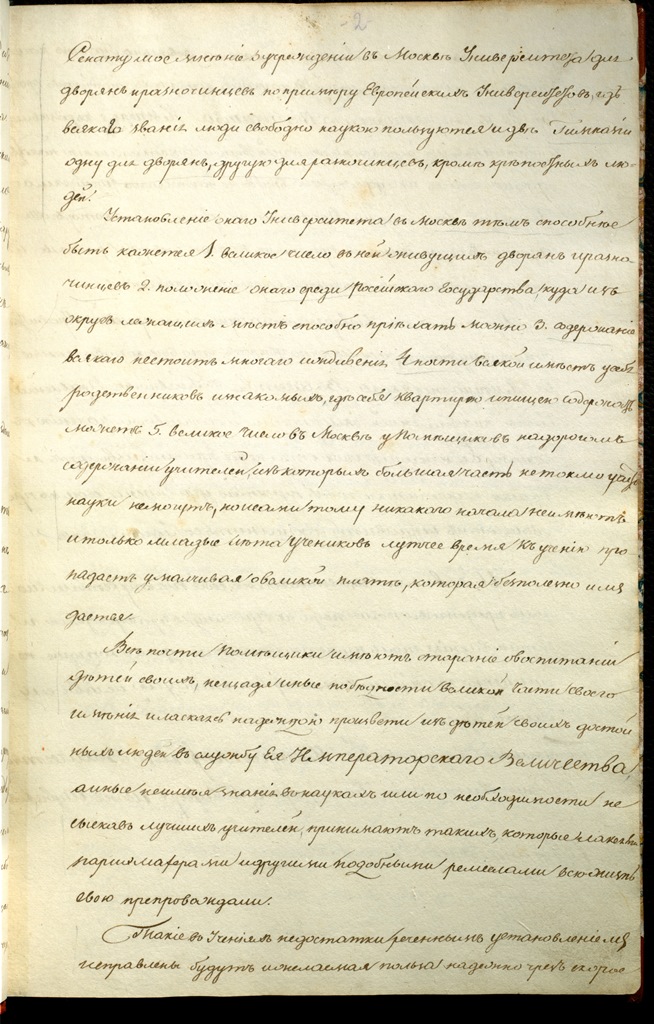 2
Сенату мое мнѣніе о учрежденіи въ Москвѣ Университета для
дворянъ и разночинцевъ по примѣру Европейскихъ Университетовъ, гдѣ
всякаго званія люди свободно наукою пользуются и двѣ Гимназіи
одну для дворянъ, другую для разночинцевъ, кромѣ крѣпостныхъ лю-
дей.
Установленіе онаго Университета въ Москвѣ тѣмъ способнѣе
быть кажется 1. великое число въ ней живущихъ дворянъ и разно-
чинцевъ 2. положеніе онаго среди Россійскаго Государства, куда изъ
округъ лежащихъ мѣстъ способно пріѣхать можно 3. содержаніе
всякаго не стоитъ многаго иждивенія 4 почти всякой имѣетъ у себя
родственниковъ и знакомыхъ, гдѣ себя квартирою и пищею содержать
можетъ 5. великое число въ Москвѣ у Помѣщиковъ на дорогомъ
содержаніи учителей, изъ которыхъ большая часть не токмо учить
науки не могутъ, но и сами тому никакого начала не имѣютъ
и только младые лѣта учениковъ лутчее время къ ученію про-
падаетъ умалчивая о великой платѣ, которая безполезно имъ
дается.
Всѣ почти Помѣщики имѣютъ стараніе о воспитаніи
дѣтей своихъ, не щадя иные по бѣдности великой части своего
имѣнія и ласкаясь надеждою произвести изъ дѣтей своихъ достой
ныхъ людей въ службу Ея Императорскаго Величества,
а иные не имѣя знанія въ наукахъ или по необходимости не
сыскавъ лучшихъ учителей, принимаютъ такихъ, которые лакеями
парикмахерами и другими подобными ремеслами всю жизнь
свою препровождали.
Такіе въ ученіяхъ недостатки реченнымъ установленіемъ
исправлены будутъ и желаемая польза надежно чрезъ скорое